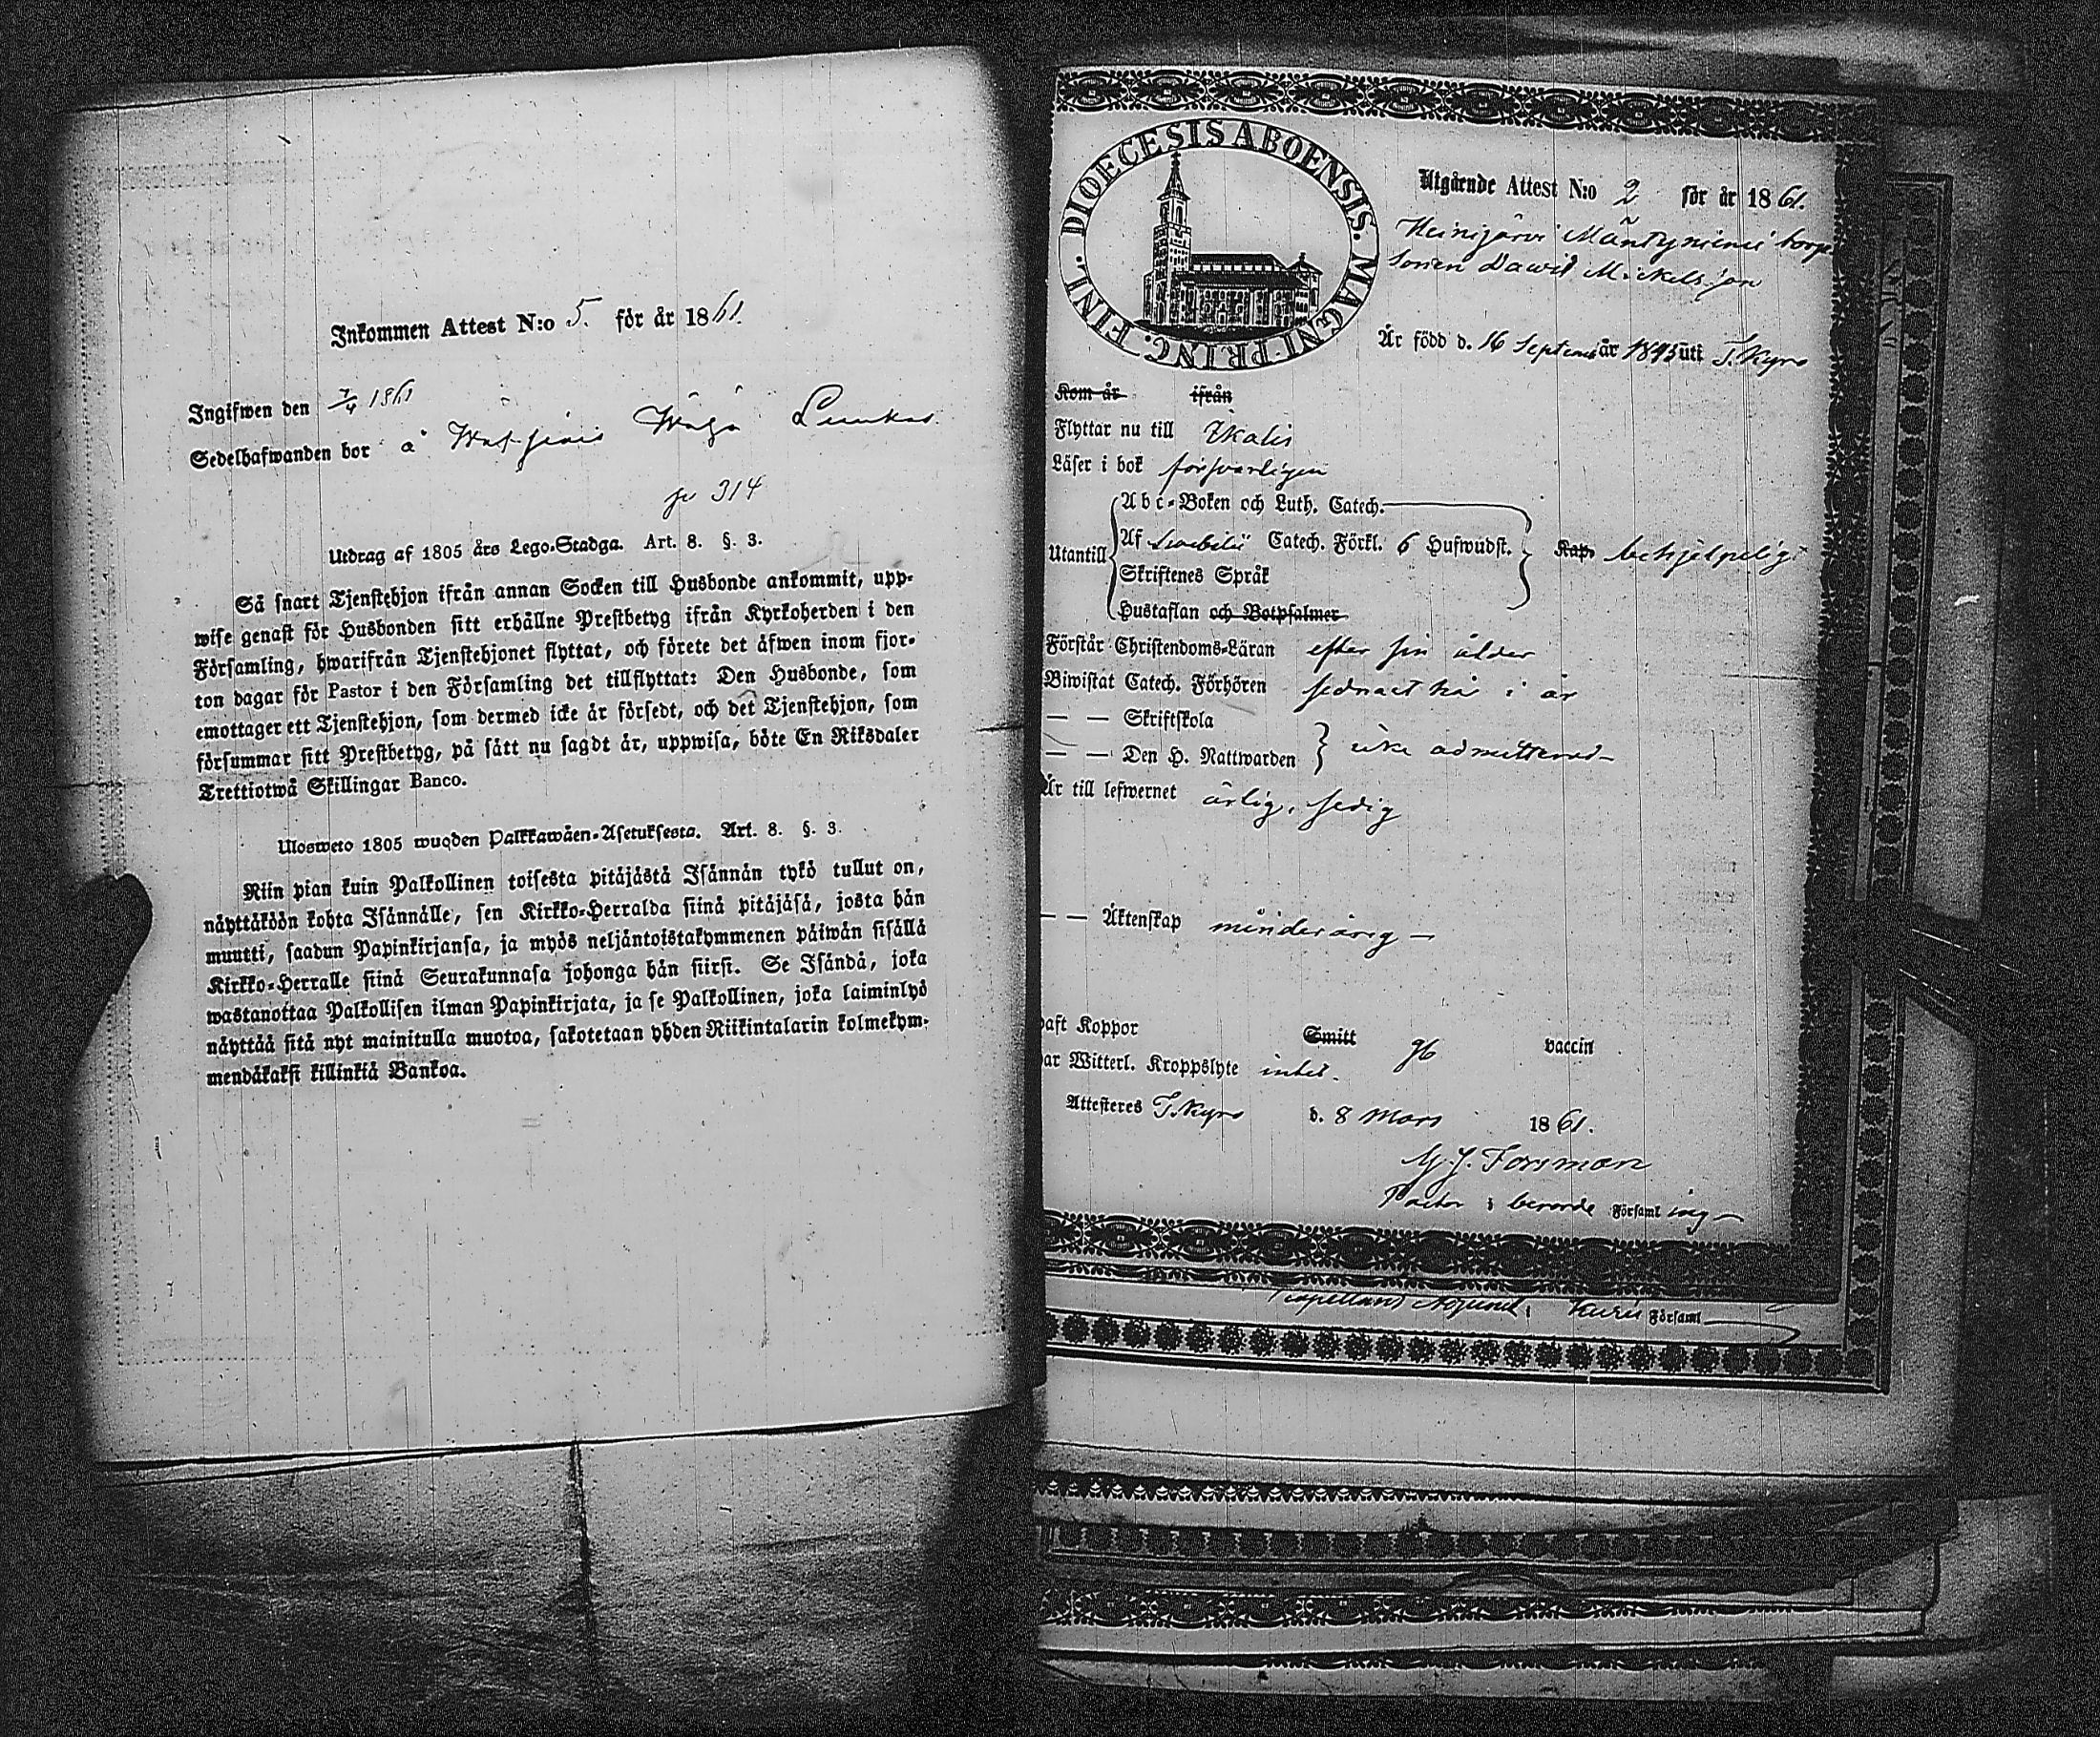 Inkommen Attest N:o 5. för år 1861.
Ingifwen den 7/4 1861
Sedelhafwanden bor å
314
Utdrag af 1805 års Lego-Stadga. Art. 8. §. 3.
Så snart Tjenstehjon ifrån annan Socken till Husbonde ankommit, upp-
wise genast för Husbonden sitt erhållne Prestbetyg ifrån Kyrkoherden i den
Församling, hwarifrån Tjenstehjonet flyttat, och förete det äfwen inom fjor-
ton dagar för Pastor i den Församling det tillflyttat: Den Husbonde, som
emottager ett Tjenstehjon, som dermed icke är försedt, och det Tjenstehjon, som
försummar sitt Prestbetyg, på sätt nu sagdt är, uppwisa, böte En Riksdaler
Trettiotwå Skillingar Banco.
Ulosweto 1805 wuoden Palkkawäen-Asetuksesta. Art. 8. §. 3.
Niin pian kuin Palkollinen toisesta pitäjästä Isännän tykö tullut on,
näyttäköön kohta Isännälle, sen Kirkko-Herralda siinä pitäjäsä, josta hän
muutti, saadun Papinkirjansa, ja myös neljäntoistakymmenen päiwän sisällä
Kirkko-Herralle siinä Seurakunnasa johonga hän siirsi. Se Isändä, joka
wastanottaa Palkollisen ilman Papinkirjata, ja se Palkollinen, joka laiminlyö
näyttää sitä nyt mainitulla muotoa, sakotetaan yhden Riikintalarin kolmekym-
mendäkaksi killinkiä Bankoa.
DIOECESIS ABOENSIS. MAGNI PRINC. FINL.
Utgående Attest N:o 2 för år 1861.
Heinijärvi Mäntyniemi torp
sonen Dawid Mickelsson
Är född d. 16 Septem år 1845 uti T. Kyro
Kom år ifrån
Flyttar nu till Ikalis
Läser i bok försvarligen
Abc-Boken och Luth. Catech.
Utantill Af Swebilii Catech. Förkl. 6 Hufwudst. Kap. behjelpeligt
Skriftenes Språk
Hustaflan och Botpsalmer
Förstår Christendoms-Läran efter sin ålder
Biwistat Catech. Förhören sednast här i år
— — Skriftskola
— — Den H. Nattwarden icke admitterad
Är till lefwernet ärlig, sedig
— — Äktenskap minderårig —
haft Koppor Smitt vaccin
har Witterl. Kroppslyte intet.
Attesteres T. Kyro d. 8 Mars 1861.
Forsman
Pastor i berörde Församling
Capellans i Församl